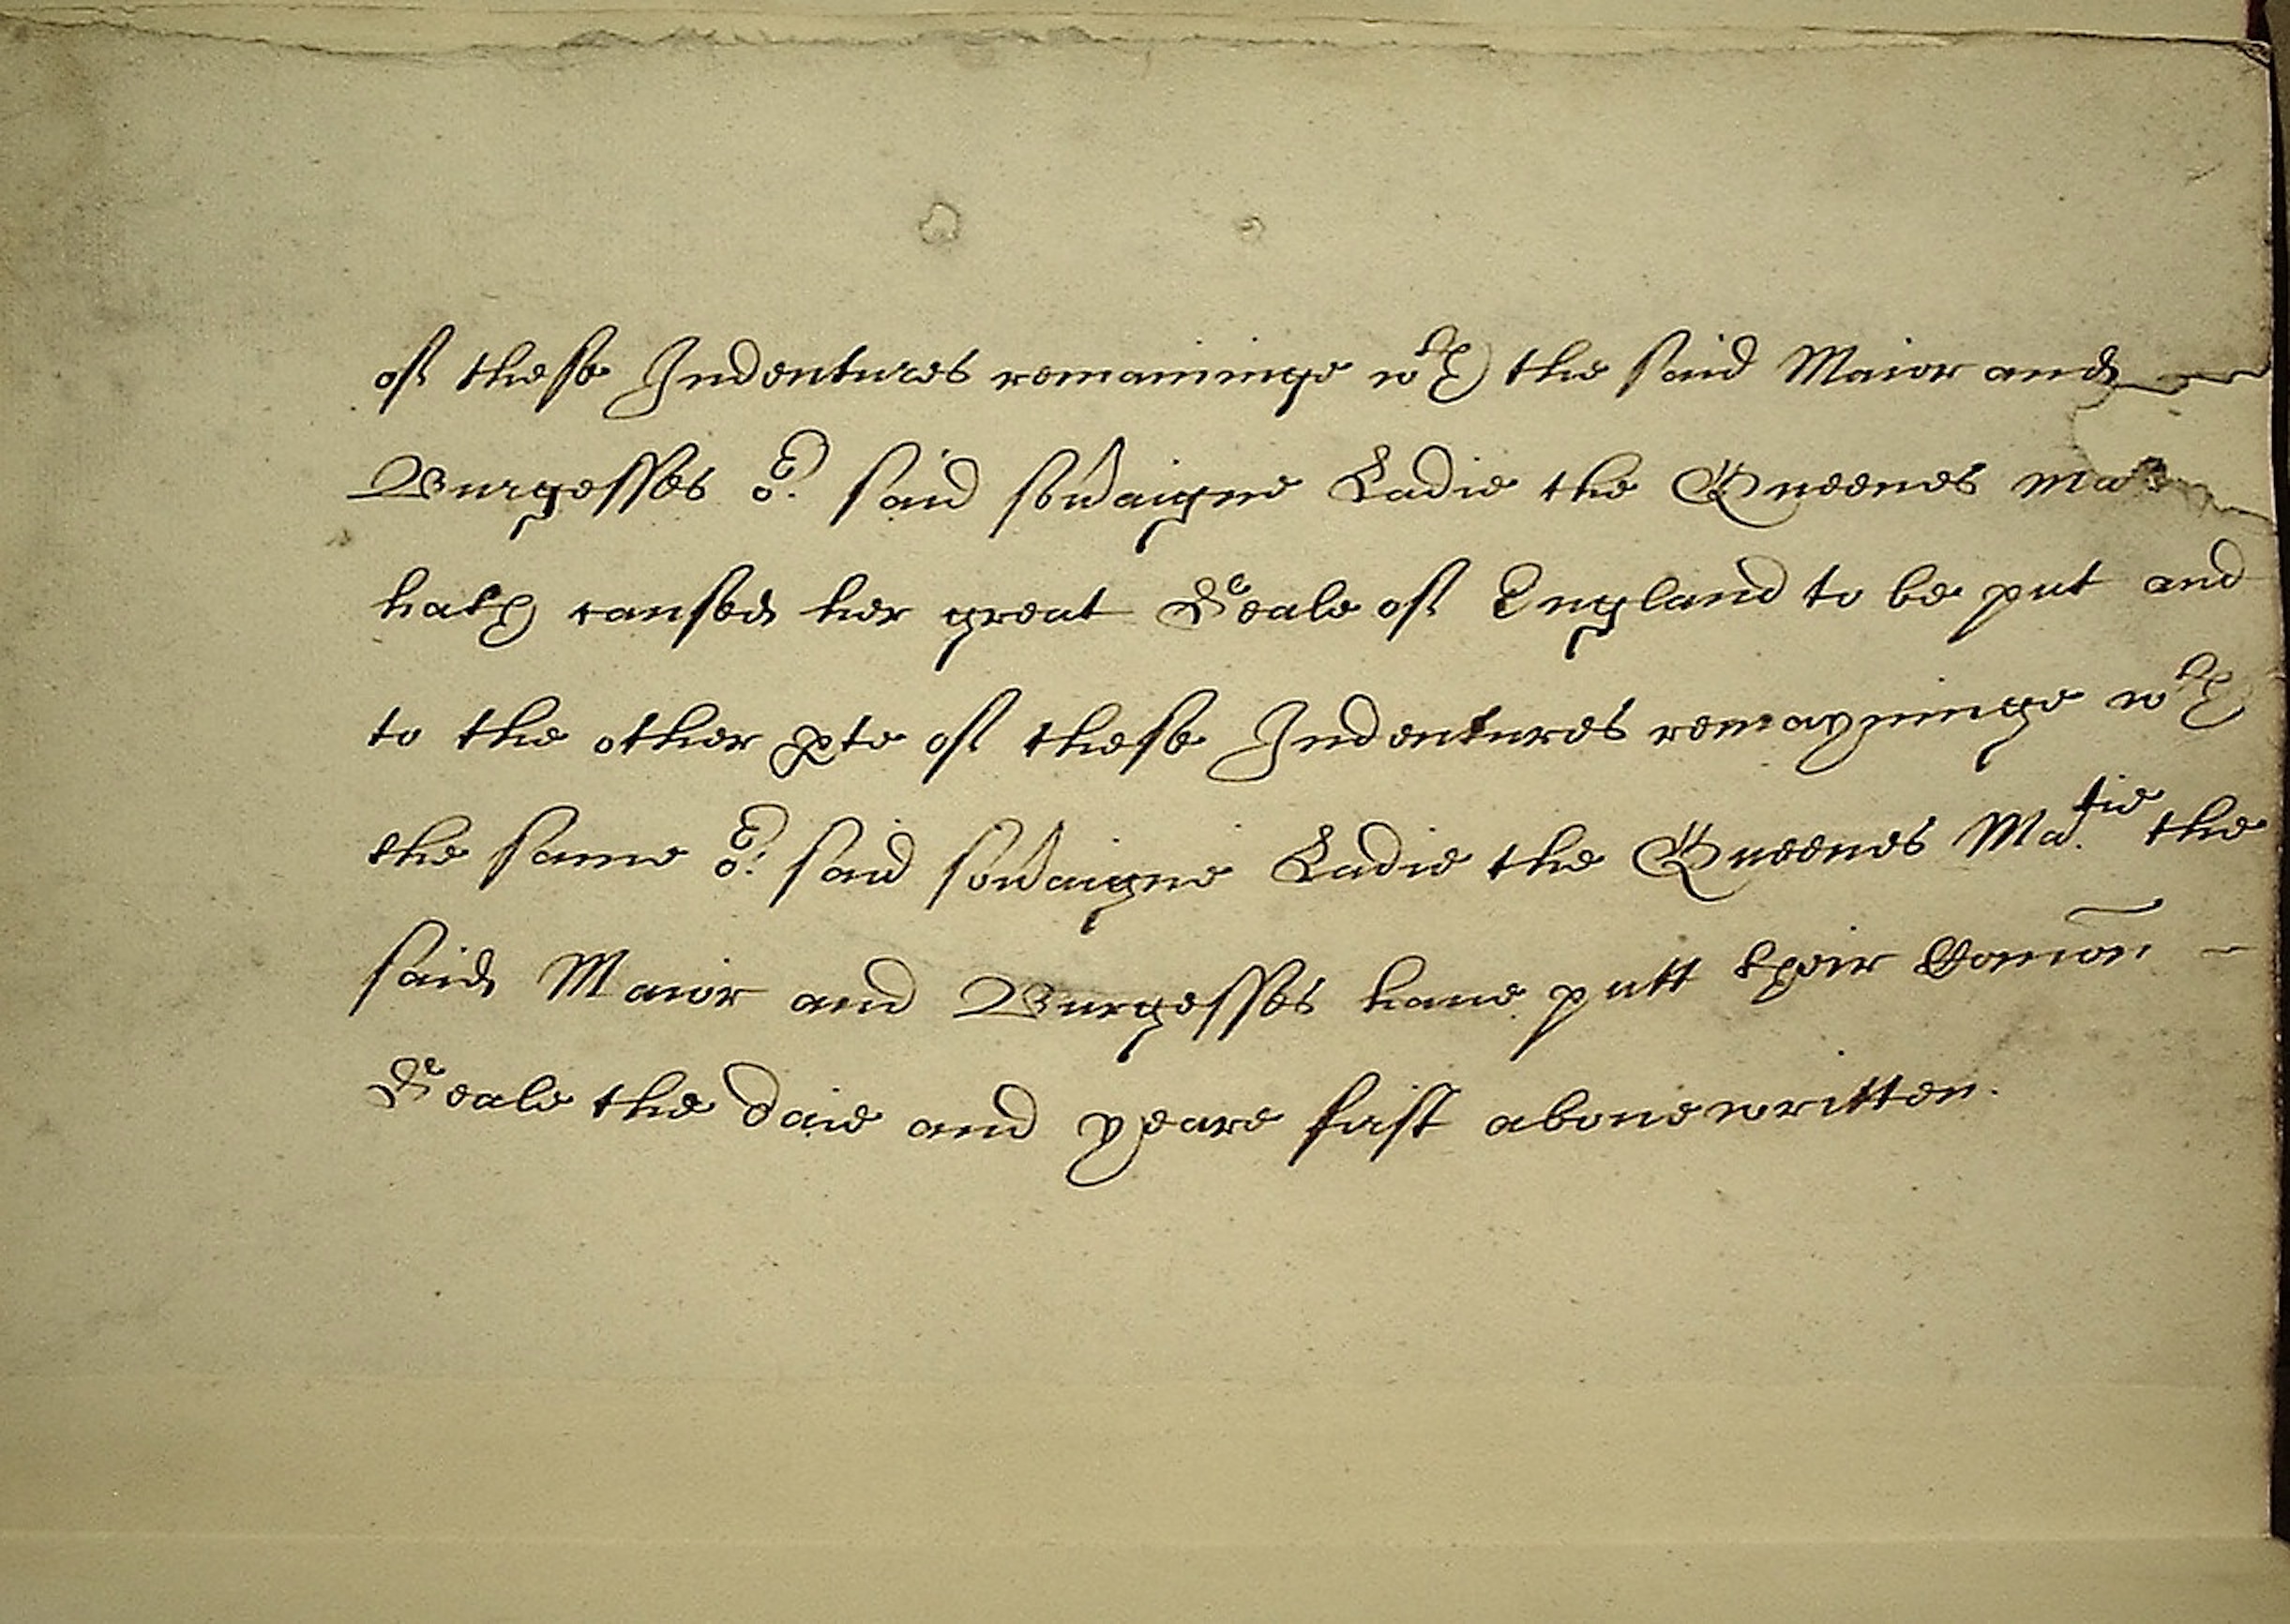 of these Indentures remaininge wth the said Maior and
Burgesses or said soũaigne Ladie the Queenes Ma
hath caused her great Seale of England to be put and
to the other pte of these Indentures remayninge wth
the same or said soũaigne Ladie the Queenes Ma.tie the
said Maior and Burgesses haue putt their Comõn
Seale the daie and yeare first abouewritten.